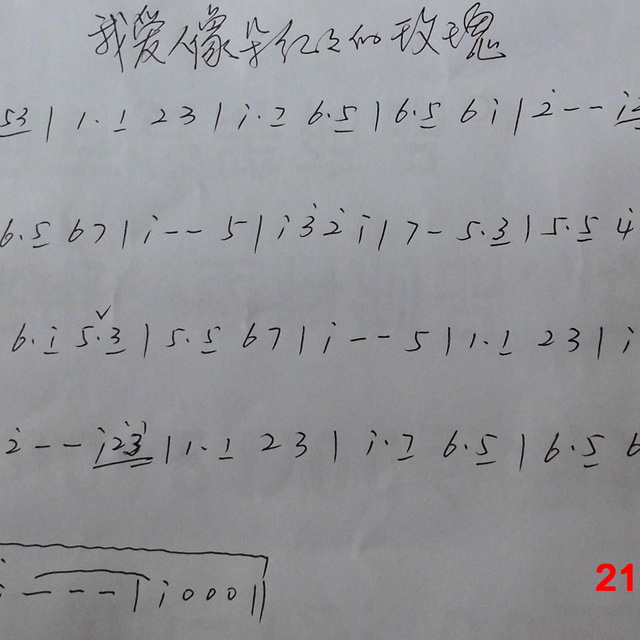 我爱人像朵红红的玫瑰
53 | 1· 1 2 3 | i· 7 6· 5 | 6· 5 6 i | 2̇ - - i
6· 5 6 7 | i - - 5 | i 3̇ 2̇ i | 7 - 5· 3 | 5· 5 4̇
6· i 5· 3 | 5· 5 6 7 | i - - 5 | 1· 1 2 3 | i
2̇ - - i 2̇ 3̇ | 1· 1 2 3 | i· 7 6· 5 | 6· 5 6
i - - - | i 0 0 0 ||
21